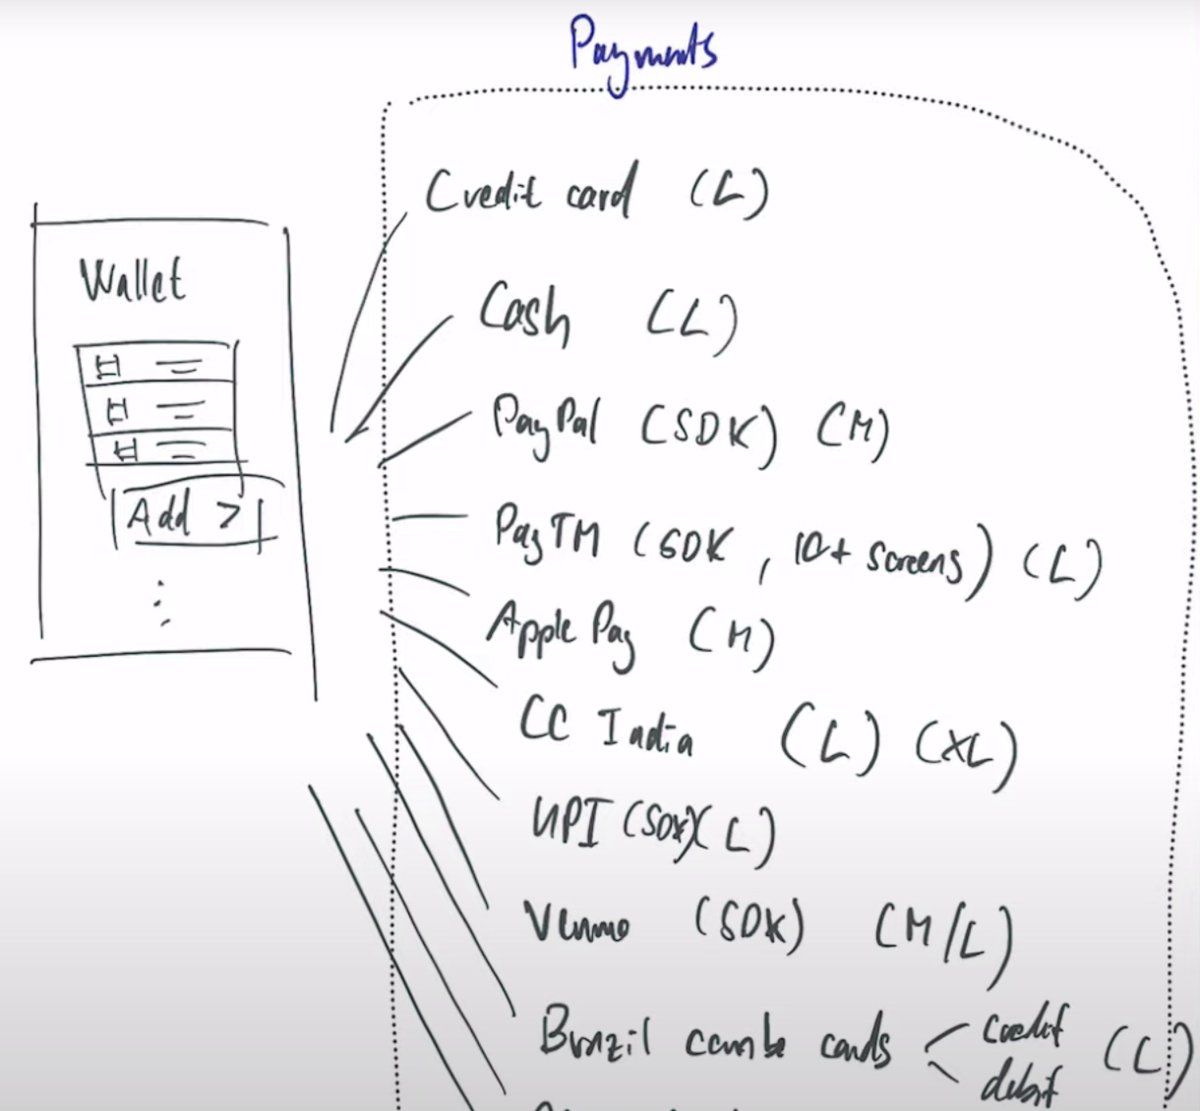 Payments
Credit card (L)
Wallet
Cash (L)
PayPal (SDK) (M)
PayTM (SDK, 10+ screens) (L)
Add >
Apple Pay (M)
CC India (L) (XL)
UPI (SDK) (L)
Venmo (SDK) (M/L)
Brazil combo cards < credit (L)
debit